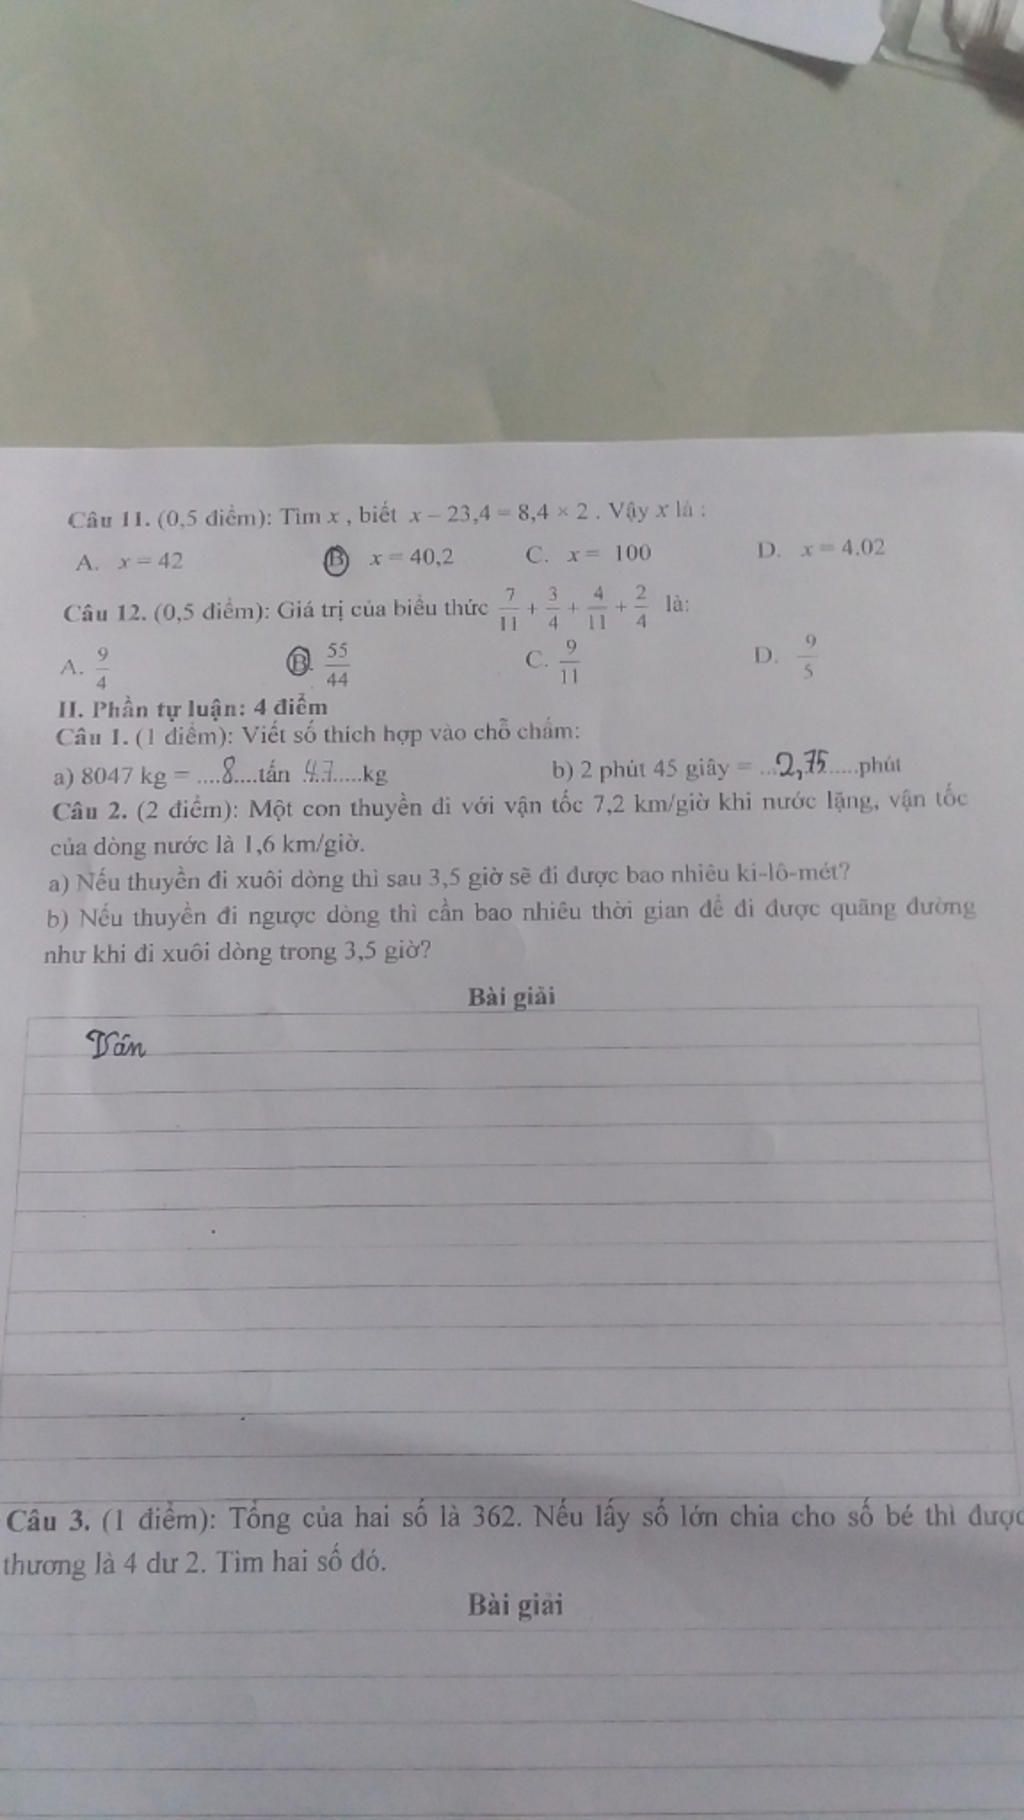 Câu 11. (0,5 điểm): Tìm x , biết x – 23,4 = 8,4 × 2 . Vậy x là :
A. x = 42 B x = 40,2 C. x = 100 D. x = 4.02
Câu 12. (0,5 điểm): Giá trị của biểu thức 7/11 + 3/4 + 4/11 + 2/4 là:
A. 9/4 B. 55/44 C. 9/11 D. 9/5
II. Phần tự luận: 4 điểm
Câu 1. (1 điểm): Viết số thích hợp vào chỗ chấm:
a) 8047 kg = ....8....tấn 47.....kg b) 2 phút 45 giây = ...2,75.....phút
Câu 2. (2 điểm): Một con thuyền đi với vận tốc 7,2 km/giờ khi nước lặng, vận tốc
của dòng nước là 1,6 km/giờ.
a) Nếu thuyền đi xuôi dòng thì sau 3,5 giờ sẽ đi được bao nhiêu ki-lô-mét?
b) Nếu thuyền đi ngược dòng thì cần bao nhiêu thời gian để đi được quãng đường
như khi đi xuôi dòng trong 3,5 giờ?
Bài giải
Câu 3. (1 điểm): Tổng của hai số là 362. Nếu lấy số lớn chia cho số bé thì được
thương là 4 dư 2. Tìm hai số đó.
Bài giải